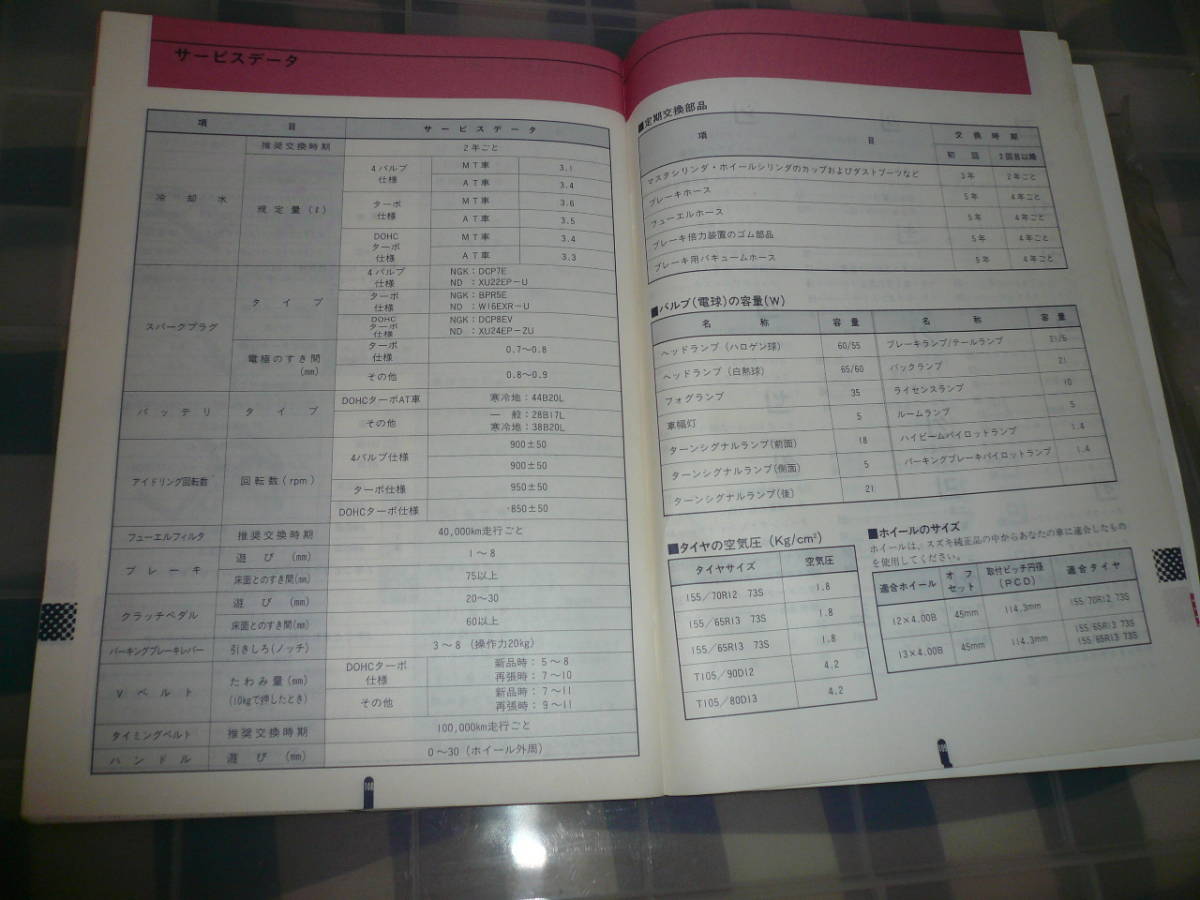 サービスデータ
項 目 サービスデータ
冷却水 推奨交換時期 2年ごと
規定量(ℓ) 4バルブ仕様 MT車 3.1
AT車 3.4
ターボ仕様 MT車 3.6
AT車 3.5
DOHCターボ仕様 MT車 3.4
AT車 3.3
スパークプラグ タイプ 4バルブ仕様 NGK:DCP7E
ND :XU22EP-U
ターボ仕様 NGK:BPR5E
ND :W16EXR-U
DOHCターボ仕様 NGK:DCP8EV
ND :XU24EP-ZU
電極のすき間(mm) ターボ仕様 0.7~0.8
その他 0.8~0.9
バッテリ タイプ DOHCターボAT車 寒冷地:44B20L
その他 一 般:28B17L
寒冷地:38B20L
アイドリング回転数 回転数(rpm) 4バルブ仕様 900±50
900±50
ターボ仕様 950±50
DOHCターボ仕様 850±50
フューエルフィルタ 推奨交換時期 40,000km走行ごと
ブレーキ 遊び (mm) 1~8
床面とのすき間(mm) 75以上
クラッチペダル 遊び (mm) 20~30
床面とのすき間(mm) 60以上
パーキングブレーキレバー 引きしろ(ノッチ) 3~8(操作力20kg)
Vベルト たわみ量(mm)
(10kgで押したとき) DOHCターボ仕様 新品時:5~8
再張時:7~10
その他 新品時:7~11
再張時:9~11
タイミングベルト 推奨交換時期 100,000km走行ごと
ハンドル 遊び (mm) 0~30(ホイール外周)
108
■定期交換部品
項 目 交換時期
初回 2回目以降
マスタシリンダ・ホイールシリンダのカップおよびダストブーツなど 3年 2年ごと
ブレーキホース 5年 4年ごと
フューエルホース 5年 4年ごと
ブレーキ倍力装置のゴム部品 5年 4年ごと
ブレーキ用バキュームホース 5年 4年ごと
■バルブ(電球)の容量(W)
名 称 容量 名 称 容量
ヘッドランプ(ハロゲン球) 60/55 ブレーキランプ/テールランプ 21/5
ヘッドランプ(白熱球) 65/60 バックランプ 21
フォグランプ 35 ライセンスランプ 10
車幅灯 5 ルームランプ 5
ターンシグナルランプ(前面) 18 ハイビームパイロットランプ 1.4
ターンシグナルランプ(側面) 5 パーキングブレーキパイロットランプ 1.4
ターンシグナルランプ(後) 21
■タイヤの空気圧(Kg/cm²)
タイヤサイズ 空気圧
155/70R12 73S 1.8
155/65R13 73S 1.8
155/65R13 73S 1.8
T105/90D12 4.2
T105/80D13 4.2
■ホイールのサイズ
ホイールは、スズキ純正品の中からあなたの車に適合したもの
を使用してください。
適合ホイール オフセット 取付ピッチ円径(PCD) 適合タイヤ
12×4.00B 45mm 114.3mm 155/70R12 73S
13×4.00B 45mm 114.3mm 155/65R13 73S
155/65R13 73S